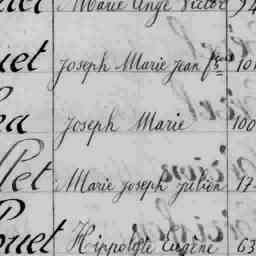 Marie Ange Victor 94
uet Joseph Marie Jean fs 101
ea Joseph Marie 100
llet Marie Joseph Julien 17
ouet Hippolyte Eugène 63